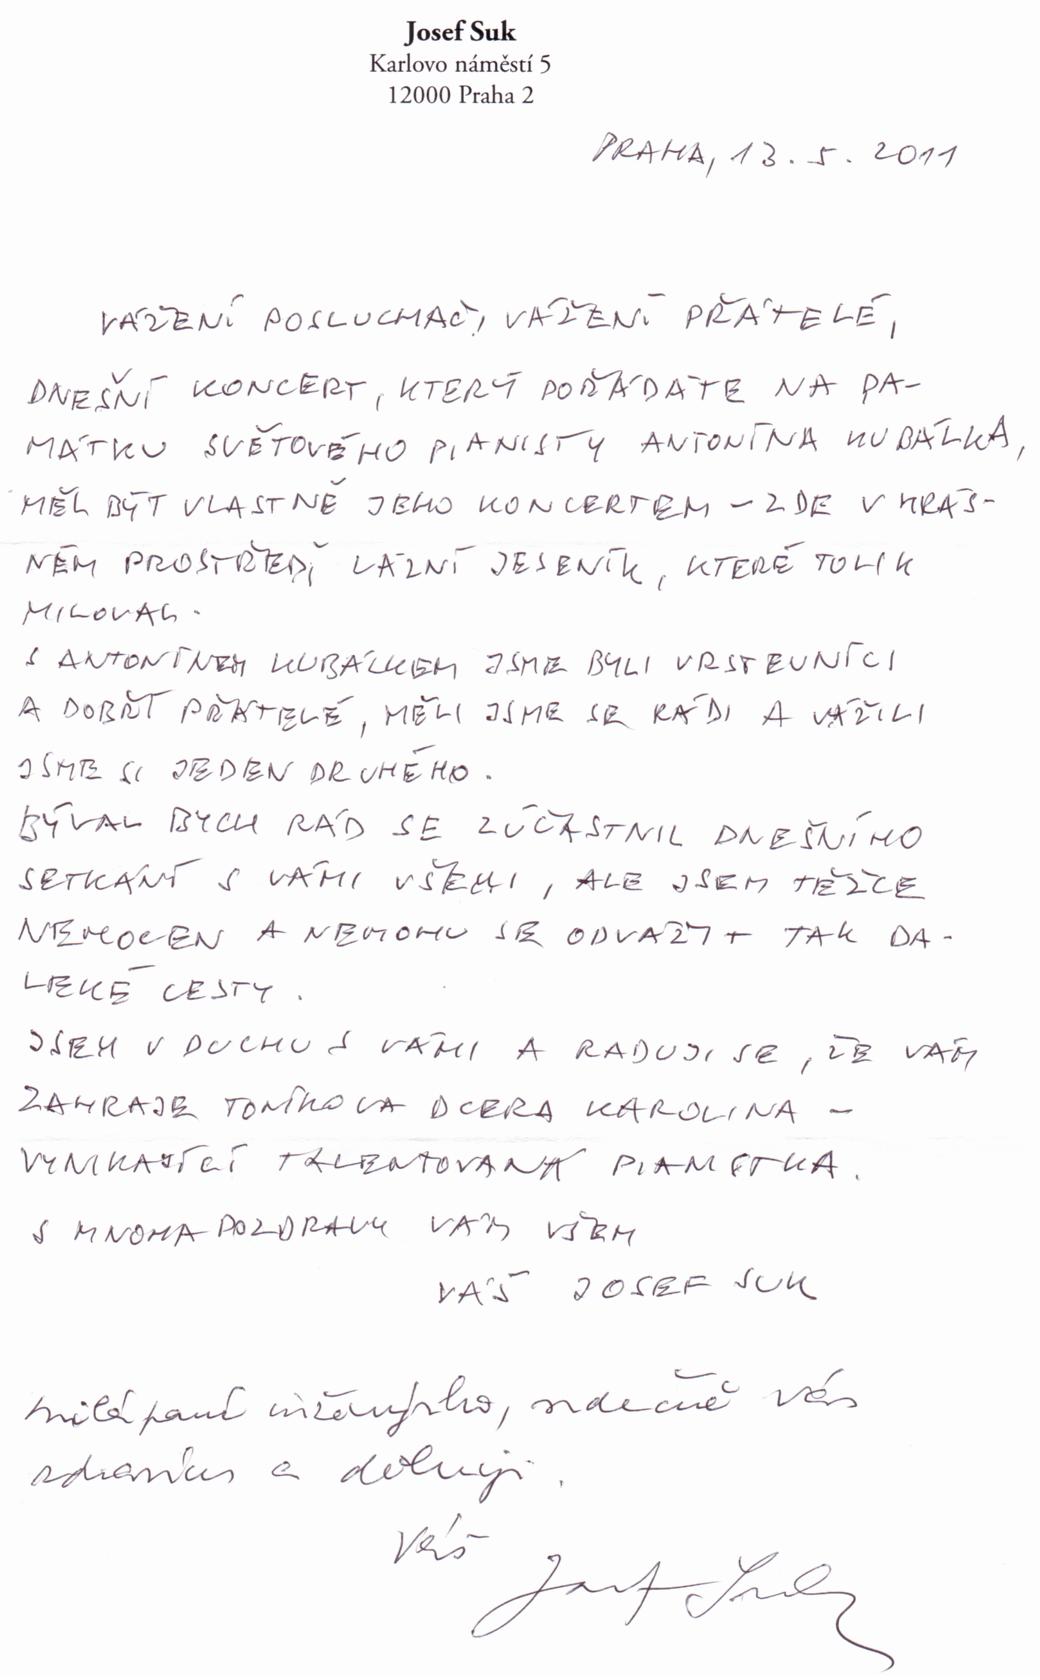 Josef Suk
Karlovo náměstí 5
12000 Praha 2
PRAHA, 13. 5. 2011
VÁŽENÍ POSLUCHAČI, VÁŽENÍ PŘÁTELÉ,
DNEŠNÍ KONCERT, KTERÝ POŘÁDÁTE NA PA-
MÁTKU SVĚTOVÉHO PIANISTY ANTONÍNA KUBÁLKA,
MĚL BÝT VLASTNĚ JEHO KONCERTEM – ZDE V KRÁS-
NÉM PROSTŘEDÍ LÁZNÍ JESENÍK, KTERÉ TOLIK
MILOVAL.
S ANTONÍNEM KUBÁLKEM JSME BYLI VRSTEVNÍCI
A DOBŘÍ PŘÁTELÉ, MĚLI JSME SE RÁDI A VÁŽILI
JSME SI JEDEN DRUHÉHO.
BÝVAL BYCH RÁD SE ZÚČASTNIL DNEŠNÍHO
SETKÁNÍ S VÁMI VŠEMI, ALE JSEM TĚŽCE
NEMOCEN A NEMOHU SE ODVÁŽIT TAK DA-
LEKÉ CESTY.
JSEM V DUCHU S VÁMI A RADUJI SE, ŽE VÁM
ZAHRAJE TONÍKOVA DCERA KAROLINA –
VYNIKAJÍCÍ TALENTOVANÁ PIANISTKA.
S MNOHA POZDRAVY VÁM VŠEM
VÁŠ JOSEF SUK
Milá paní inženýrko, srdečně Vás
zdravím a děkuji.
Váš
Josef Suk